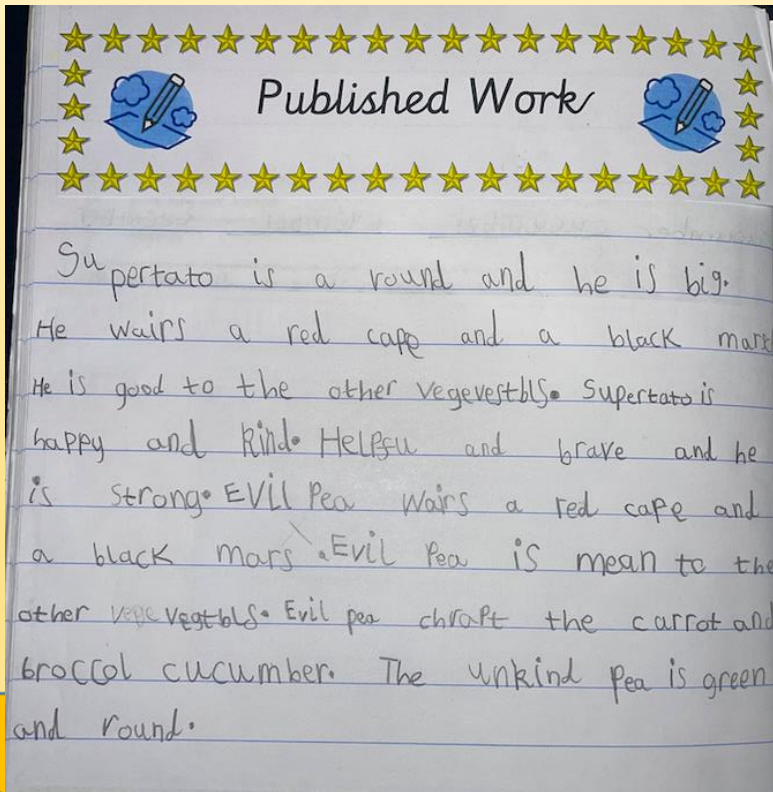 Published Work
Supertato is a round and he is big.
He wairs a red cape and a black mark
He is good to the other vegevestbls. Supertato is
happy and kind. Helpfu and brave and he
is strong. EVil Pea wairs a red cape and
a black mars. Evil Pea is mean to the
other vegtbls. Evil pea chrapt the carrot and
broccol cucumber. The unkind Pea is green
and round.